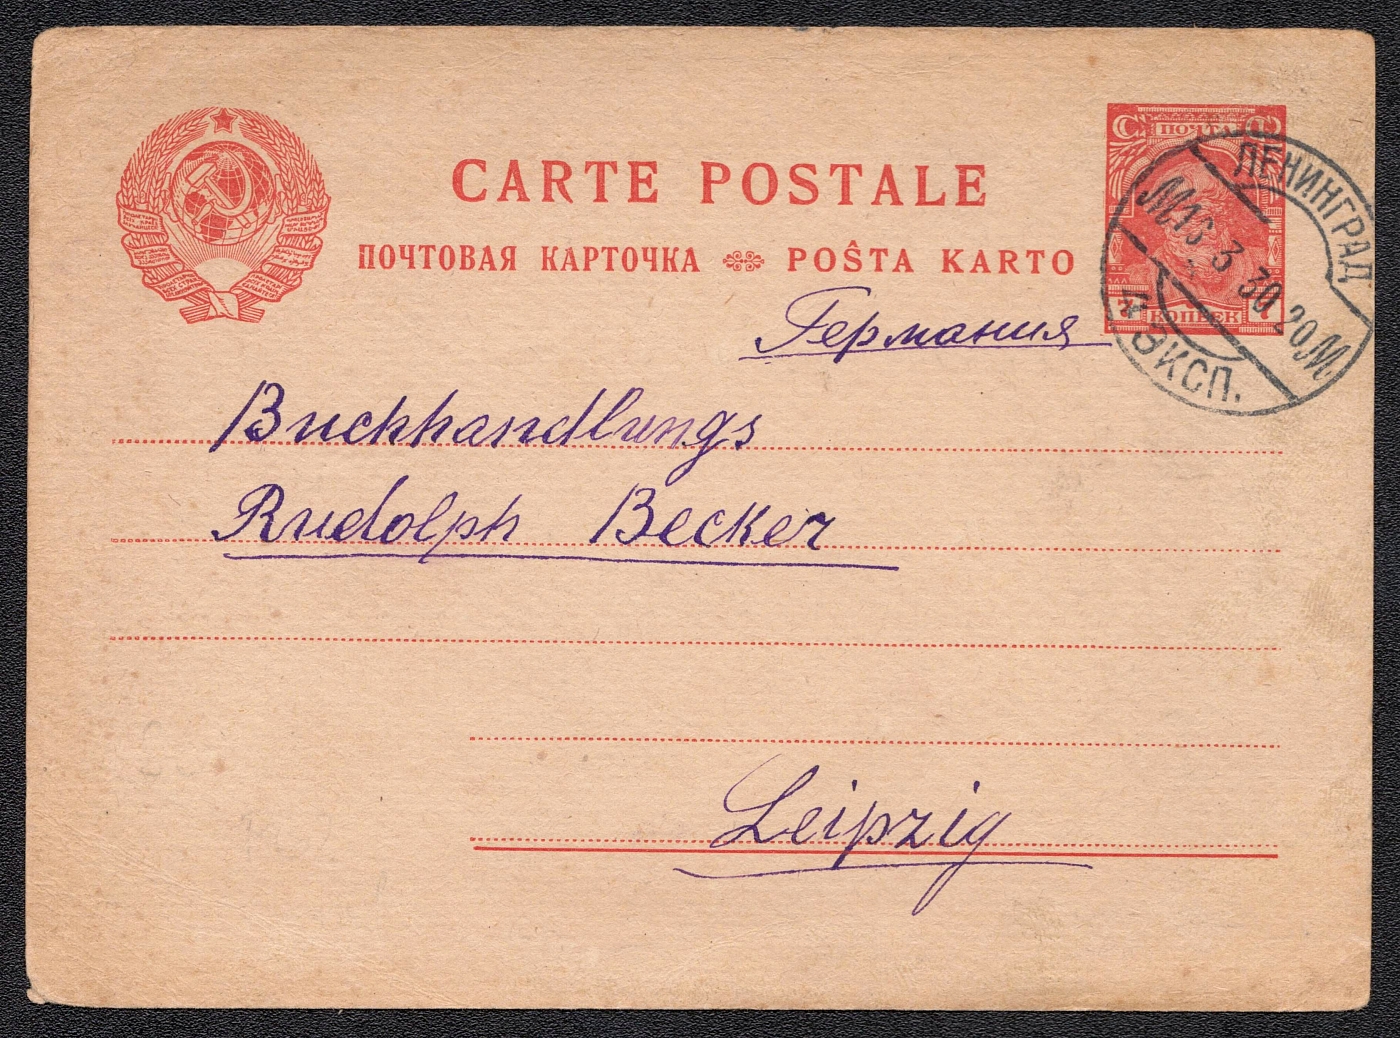 CARTE POSTALE
ПОЧТОВАЯ КАРТОЧКА POŜTA KARTO
ПОЧТА
7 КОПЕЕК 7
ЛЕНИНГРАД
16 3 30 20
ЭКСП.
Германия
Buchhandlungs
Rudolph Becker
Leipzig